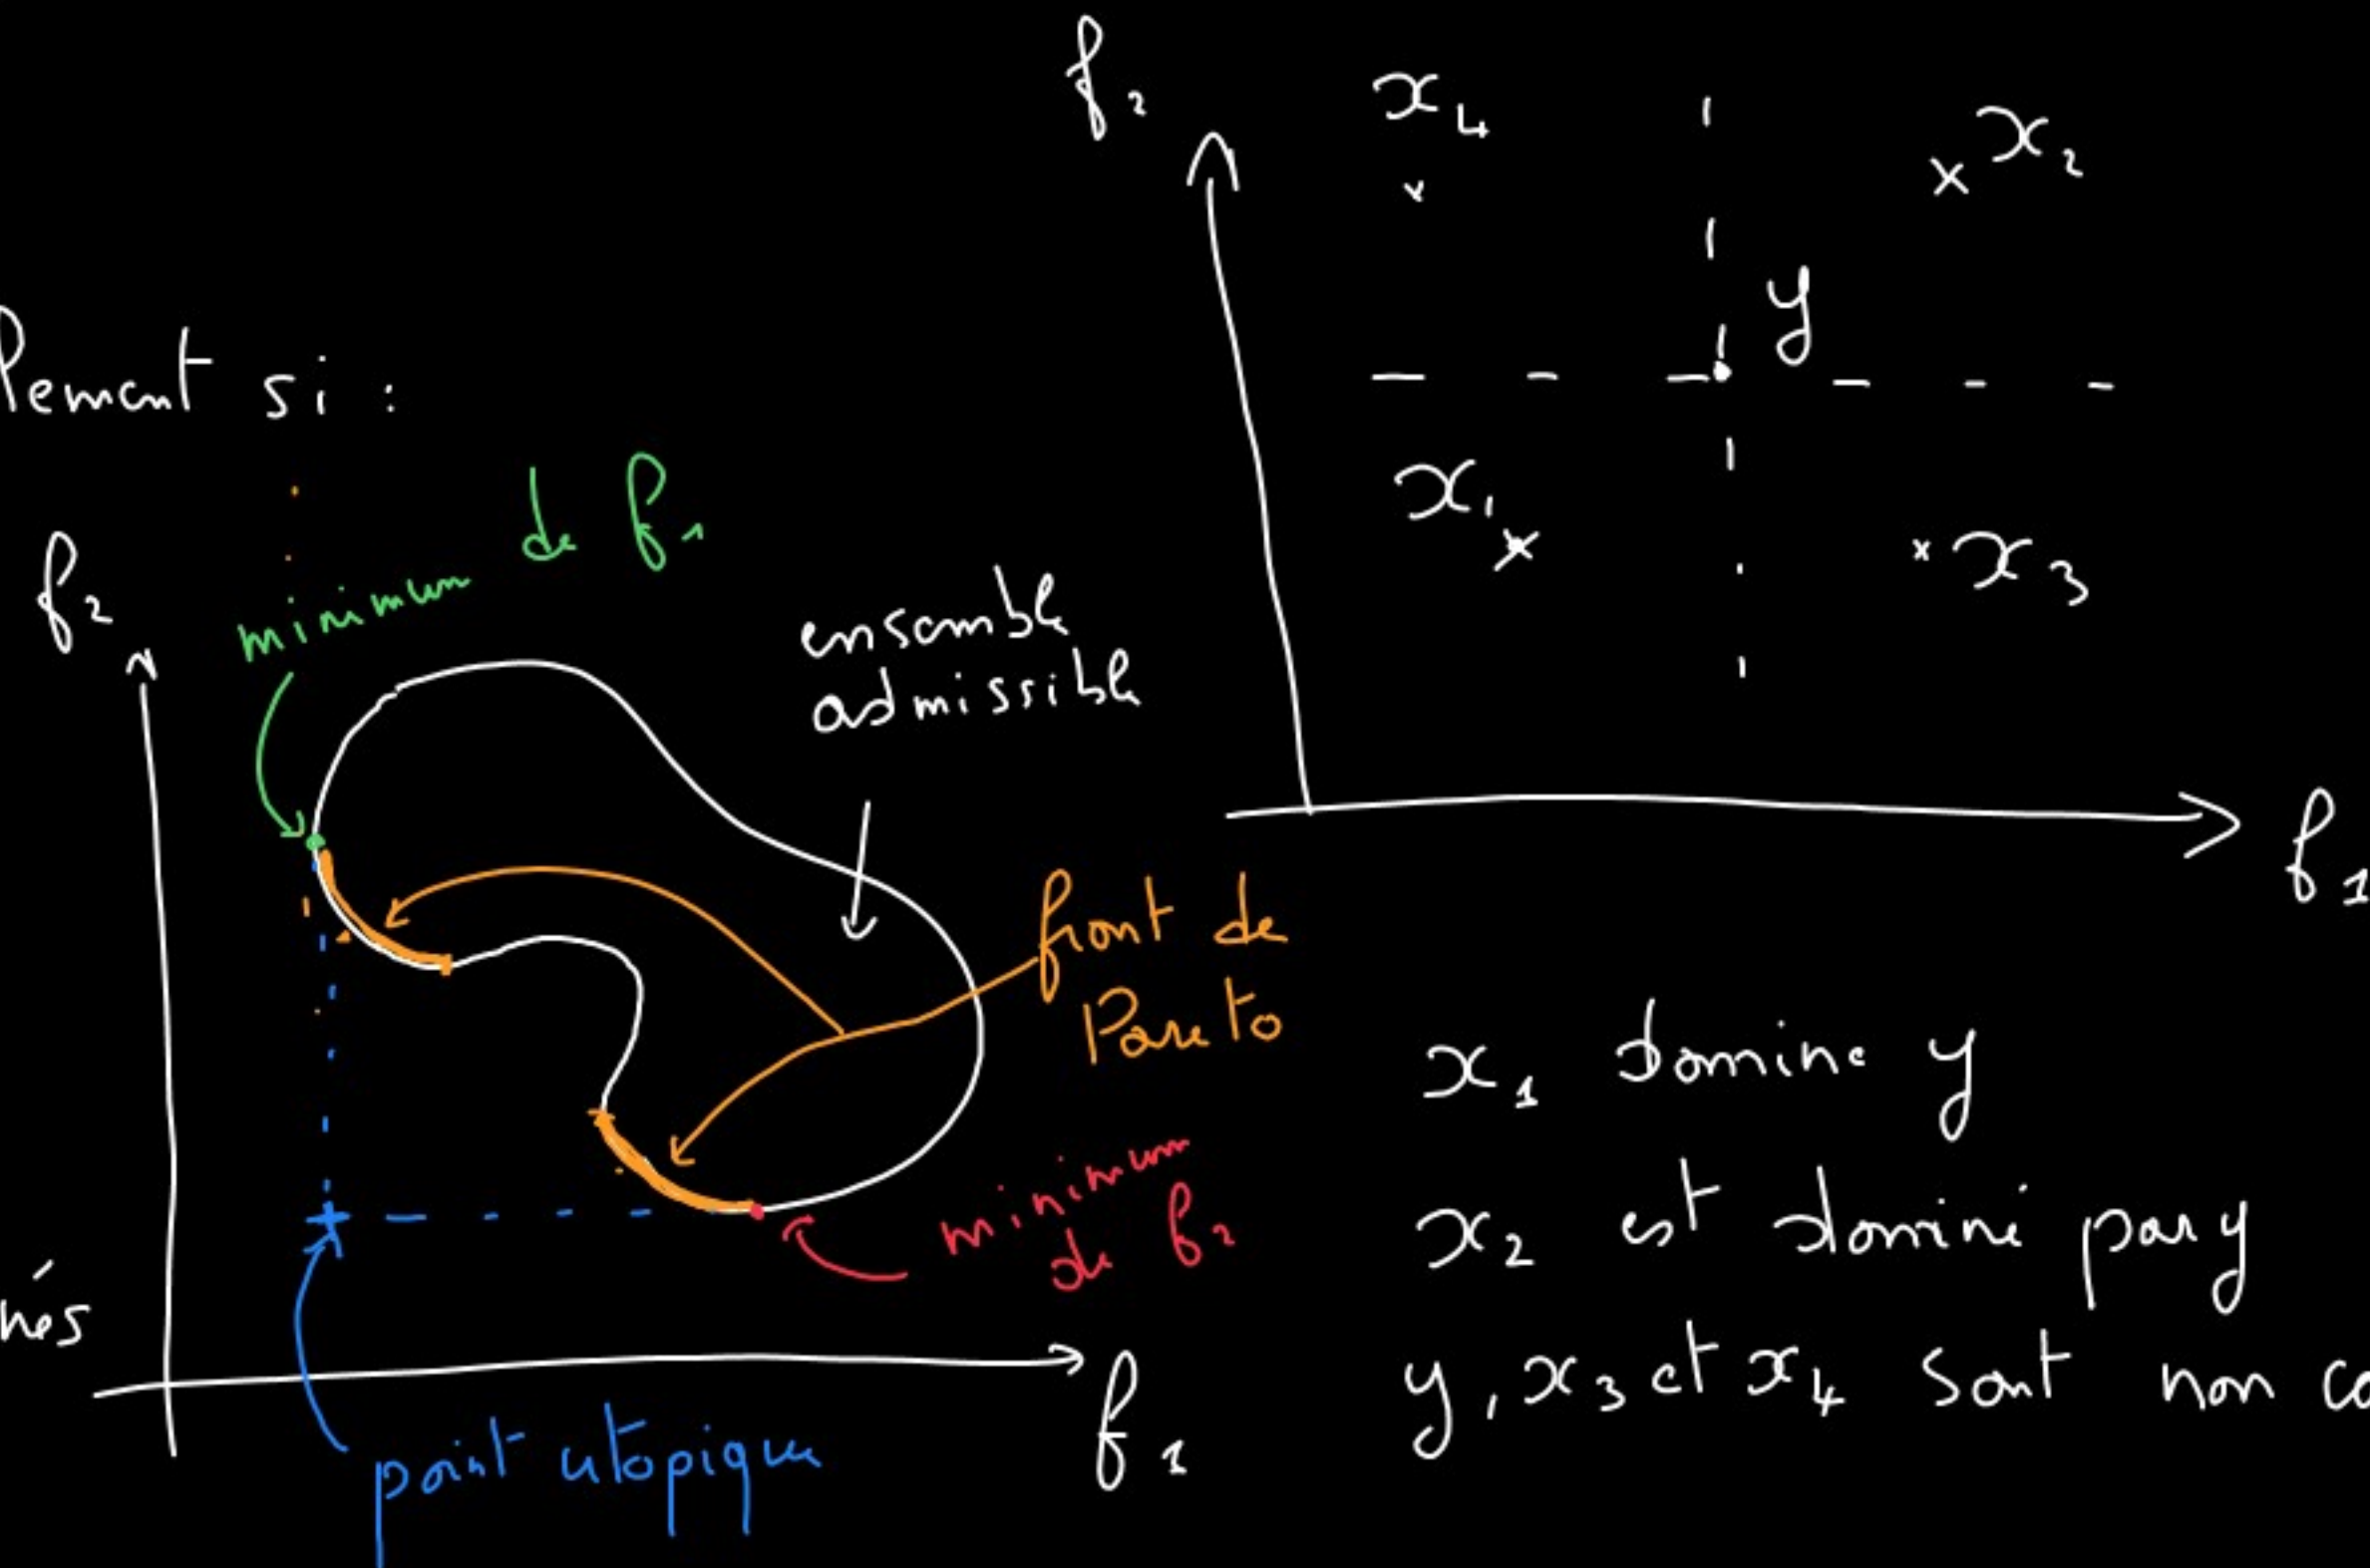 lement si :
f₂
minimum de f₁
ensemble
admissible
front de
Pareto
minimum
de f₂
nés
f₁
point utopique
f₂
x₄
x₂
y
x₁
x₃
f₁
x₁ domine y
x₂ est dominé par y
y, x₃ et x₄ sont non co